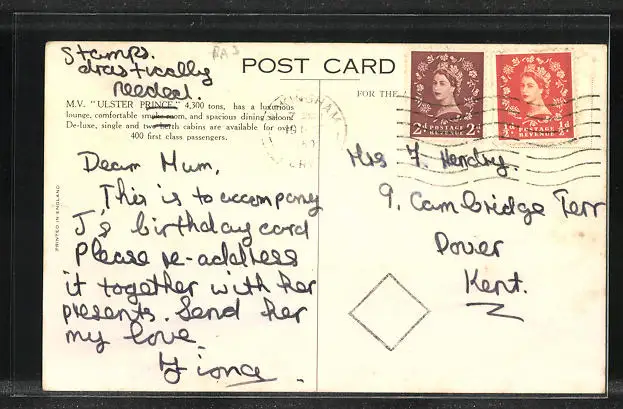 Stamps.
drastically
needed.
POST CARD
M.V. "ULSTER PRINCE," 4,300 tons, has a luxurious
lounge, comfortable smoke room, and spacious dining saloon.
De-luxe, single and two berth cabins are available for over
400 first class passengers.
FOR THE
Dear Mum,
This is to accompany
J's birthday card
Please re-address
it together with her
presents. Send her
my love.
Fiona.
PRINTED IN ENGLAND
2d POSTAGE 2d
REVENUE
½d POSTAGE ½d
REVENUE
Mrs F. Hendry.
9. Cambridge Terr
Dover
Kent.